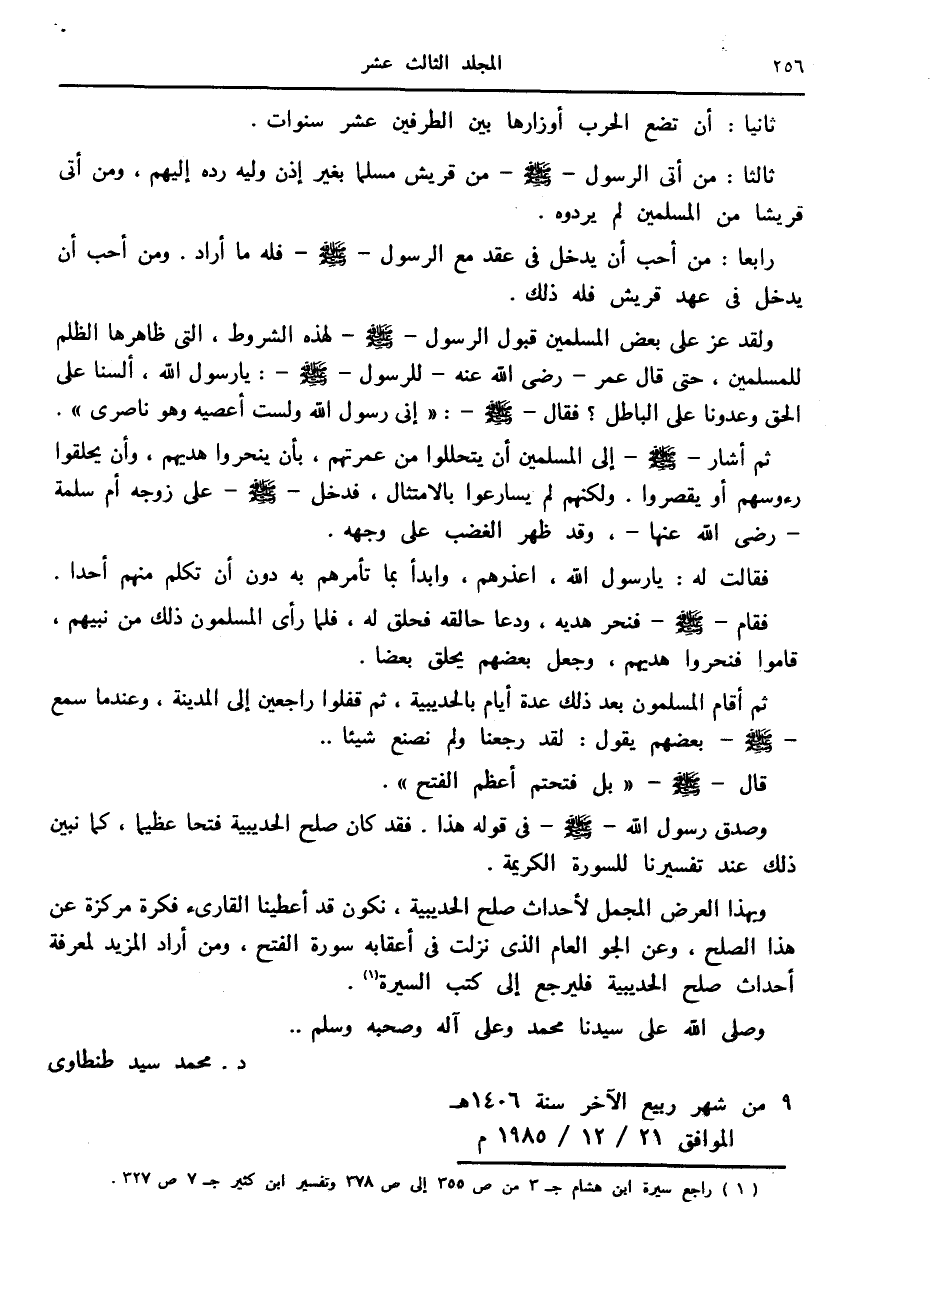 ٢٥٦ المجلد الثالث عشر
ثانيا : أن تضع الحرب أوزارها بين الطرفين عشر سنوات .
ثالثا : من أتى الرسول - ﷺ - من قريش مسلما بغير إذن وليه رده إليهم ، ومن أتى
قريشا من المسلمين لم يردوه .
رابعا : من أحب أن يدخل فى عقد مع الرسول - ﷺ - فله ما أراد . ومن أحب أن
يدخل فى عهد قريش فله ذلك .
ولقد عز على بعض المسلمين قبول الرسول - ﷺ - لهذه الشروط ، التى ظاهرها الظلم
للمسلمين ، حتى قال عمر - رضى الله عنه - للرسول - ﷺ - : يارسول الله ، ألسنا على
الحق وعدونا على الباطل ؟ فقال - ﷺ - : « إنى رسول الله ولست أعصيه وهو ناصرى » .
ثم أشار - ﷺ - إلى المسلمين أن يتحللوا من عمرتهم ، بأن ينحروا هديهم ، وأن يحلقوا
رءوسهم أو يقصروا . ولكنهم لم يسارعوا بالامتثال ، فدخل - ﷺ - على زوجه أم سلمة
- رضى الله عنها - ، وقد ظهر الغضب على وجهه .
فقالت له : يارسول الله ، اعذرهم ، وابدأ بما تأمرهم به دون أن تكلم منهم أحدا .
فقام - ﷺ - فنحر هديه ، ودعا حالقه فحلق له ، فلما رأى المسلمون ذلك من نبيهم ،
قاموا فنحروا هديهم ، وجعل بعضهم يحلق بعضا .
ثم أقام المسلمون بعد ذلك عدة أيام بالحديبية ، ثم قفلوا راجعين إلى المدينة ، وعندما سمع
- ﷺ - بعضهم يقول : لقد رجعنا ولم نصنع شيئا ..
قال - ﷺ - « بل فتحتم أعظم الفتح » .
وصدق رسول الله - ﷺ - فى قوله هذا . فقد كان صلح الحديبية فتحا عظيما ، كما نبين
ذلك عند تفسيرنا للسورة الكريمة .
وبهذا العرض المجمل لأحداث صلح الحديبية ، نكون قد أعطينا القارىء فكرة مركزة عن
هذا الصلح ، وعن الجو العام الذى نزلت فى أعقابه سورة الفتح ، ومن أراد المزيد لمعرفة
أحداث صلح الحديبية فليرجع إلى كتب السيرة(١) .
وصلى الله على سيدنا محمد وعلى آله وصحبه وسلم ..
د . محمد سيد طنطاوى
٩ من شهر ربيع الآخر سنة ١٤٠٦هـ
الموافق ٢١ / ١٢ / ١٩٨٥ م
( ١ ) راجع سيرة ابن هشام جـ ٣ من ص ٣٥٥ إلى ص ٣٧٨ وتفسير ابن كثير جـ ٧ ص ٣٢٧ .